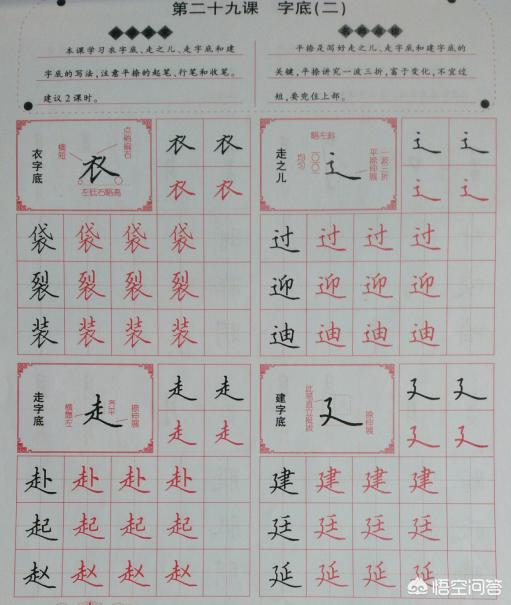 第二十九课 字底(二)
本课学习衣字底、走之儿、走字底和建
字底的写法,注意平捺的起笔、行笔和收笔。
建议2课时。
平捺是写好走之儿、走字底和建字底的
关键,平捺讲究一波三折,富于变化,不宜过
短,要兜住上部。
衣字底
横短
点略偏右
左低右略高
衣
衣 衣
衣 衣
袋 袋 袋 袋
裂 裂 裂 裂
装 装 装 装
走之儿
略左斜
均匀
一波三折
平捺伸展
辶
辶 辶
辶 辶
过 过 过 过
迎 迎 迎 迎
迪 迪 迪 迪
走字底
横略左
齐平
捺伸展
走
走 走
走 走
赴 赴 赴 赴
起 起 起 起
赵 赵 赵 赵
建字底
捺伸展
廴
廴 廴
廴 廴
建 建 建 建
廷 廷 廷 廷
延 延 延 延
悟空问答